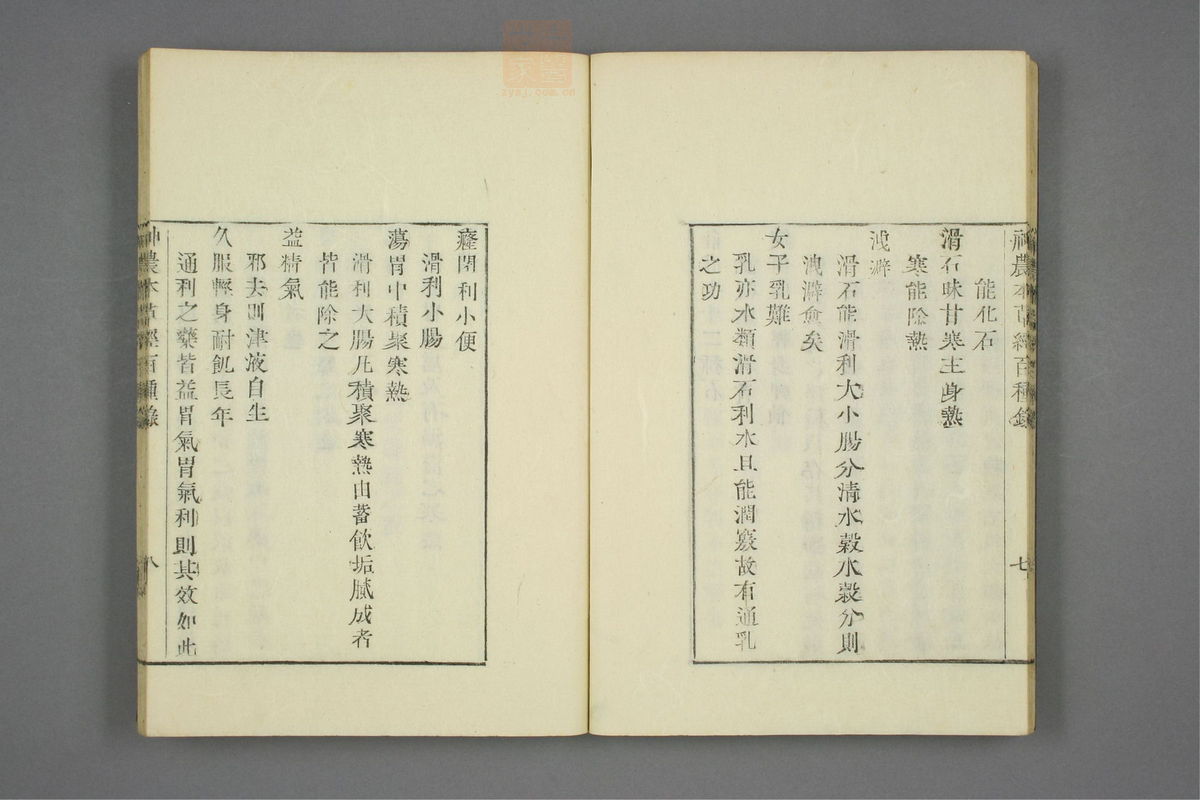 神農本草經百種錄
七
能化石
滑石味甘寒主身熱
寒能除熱
洩澼
滑石能滑利大小腸分清水穀水穀分則
洩澼愈矣
女子乳難
乳亦水類滑石利水且能潤竅故有通乳
之功
癃閉利小便
滑利小腸
蕩胃中積聚寒熱
滑利大腸凡積聚寒熱由蓄飮垢膩成者
皆能除之
益精氣
邪去則津液自生
久服輕身耐飢長年
通利之藥皆益胃氣胃氣利則其效如此
神農本草經百種錄
八
zysj.com.cn